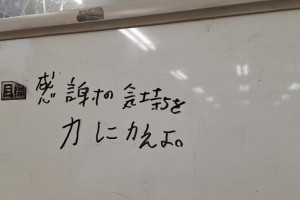 目標
感謝の気持を
力にかえよ。